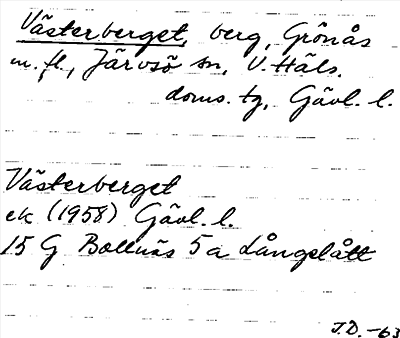 Västerberget, berg, Grönås
m. fl., Järvsö sn, V. Häls.
doms. tg, Gävl. l.
Västerberget
ek (1958) Gävl. l.
15 G Bollnäs 5 a Långslått
J.D. -63